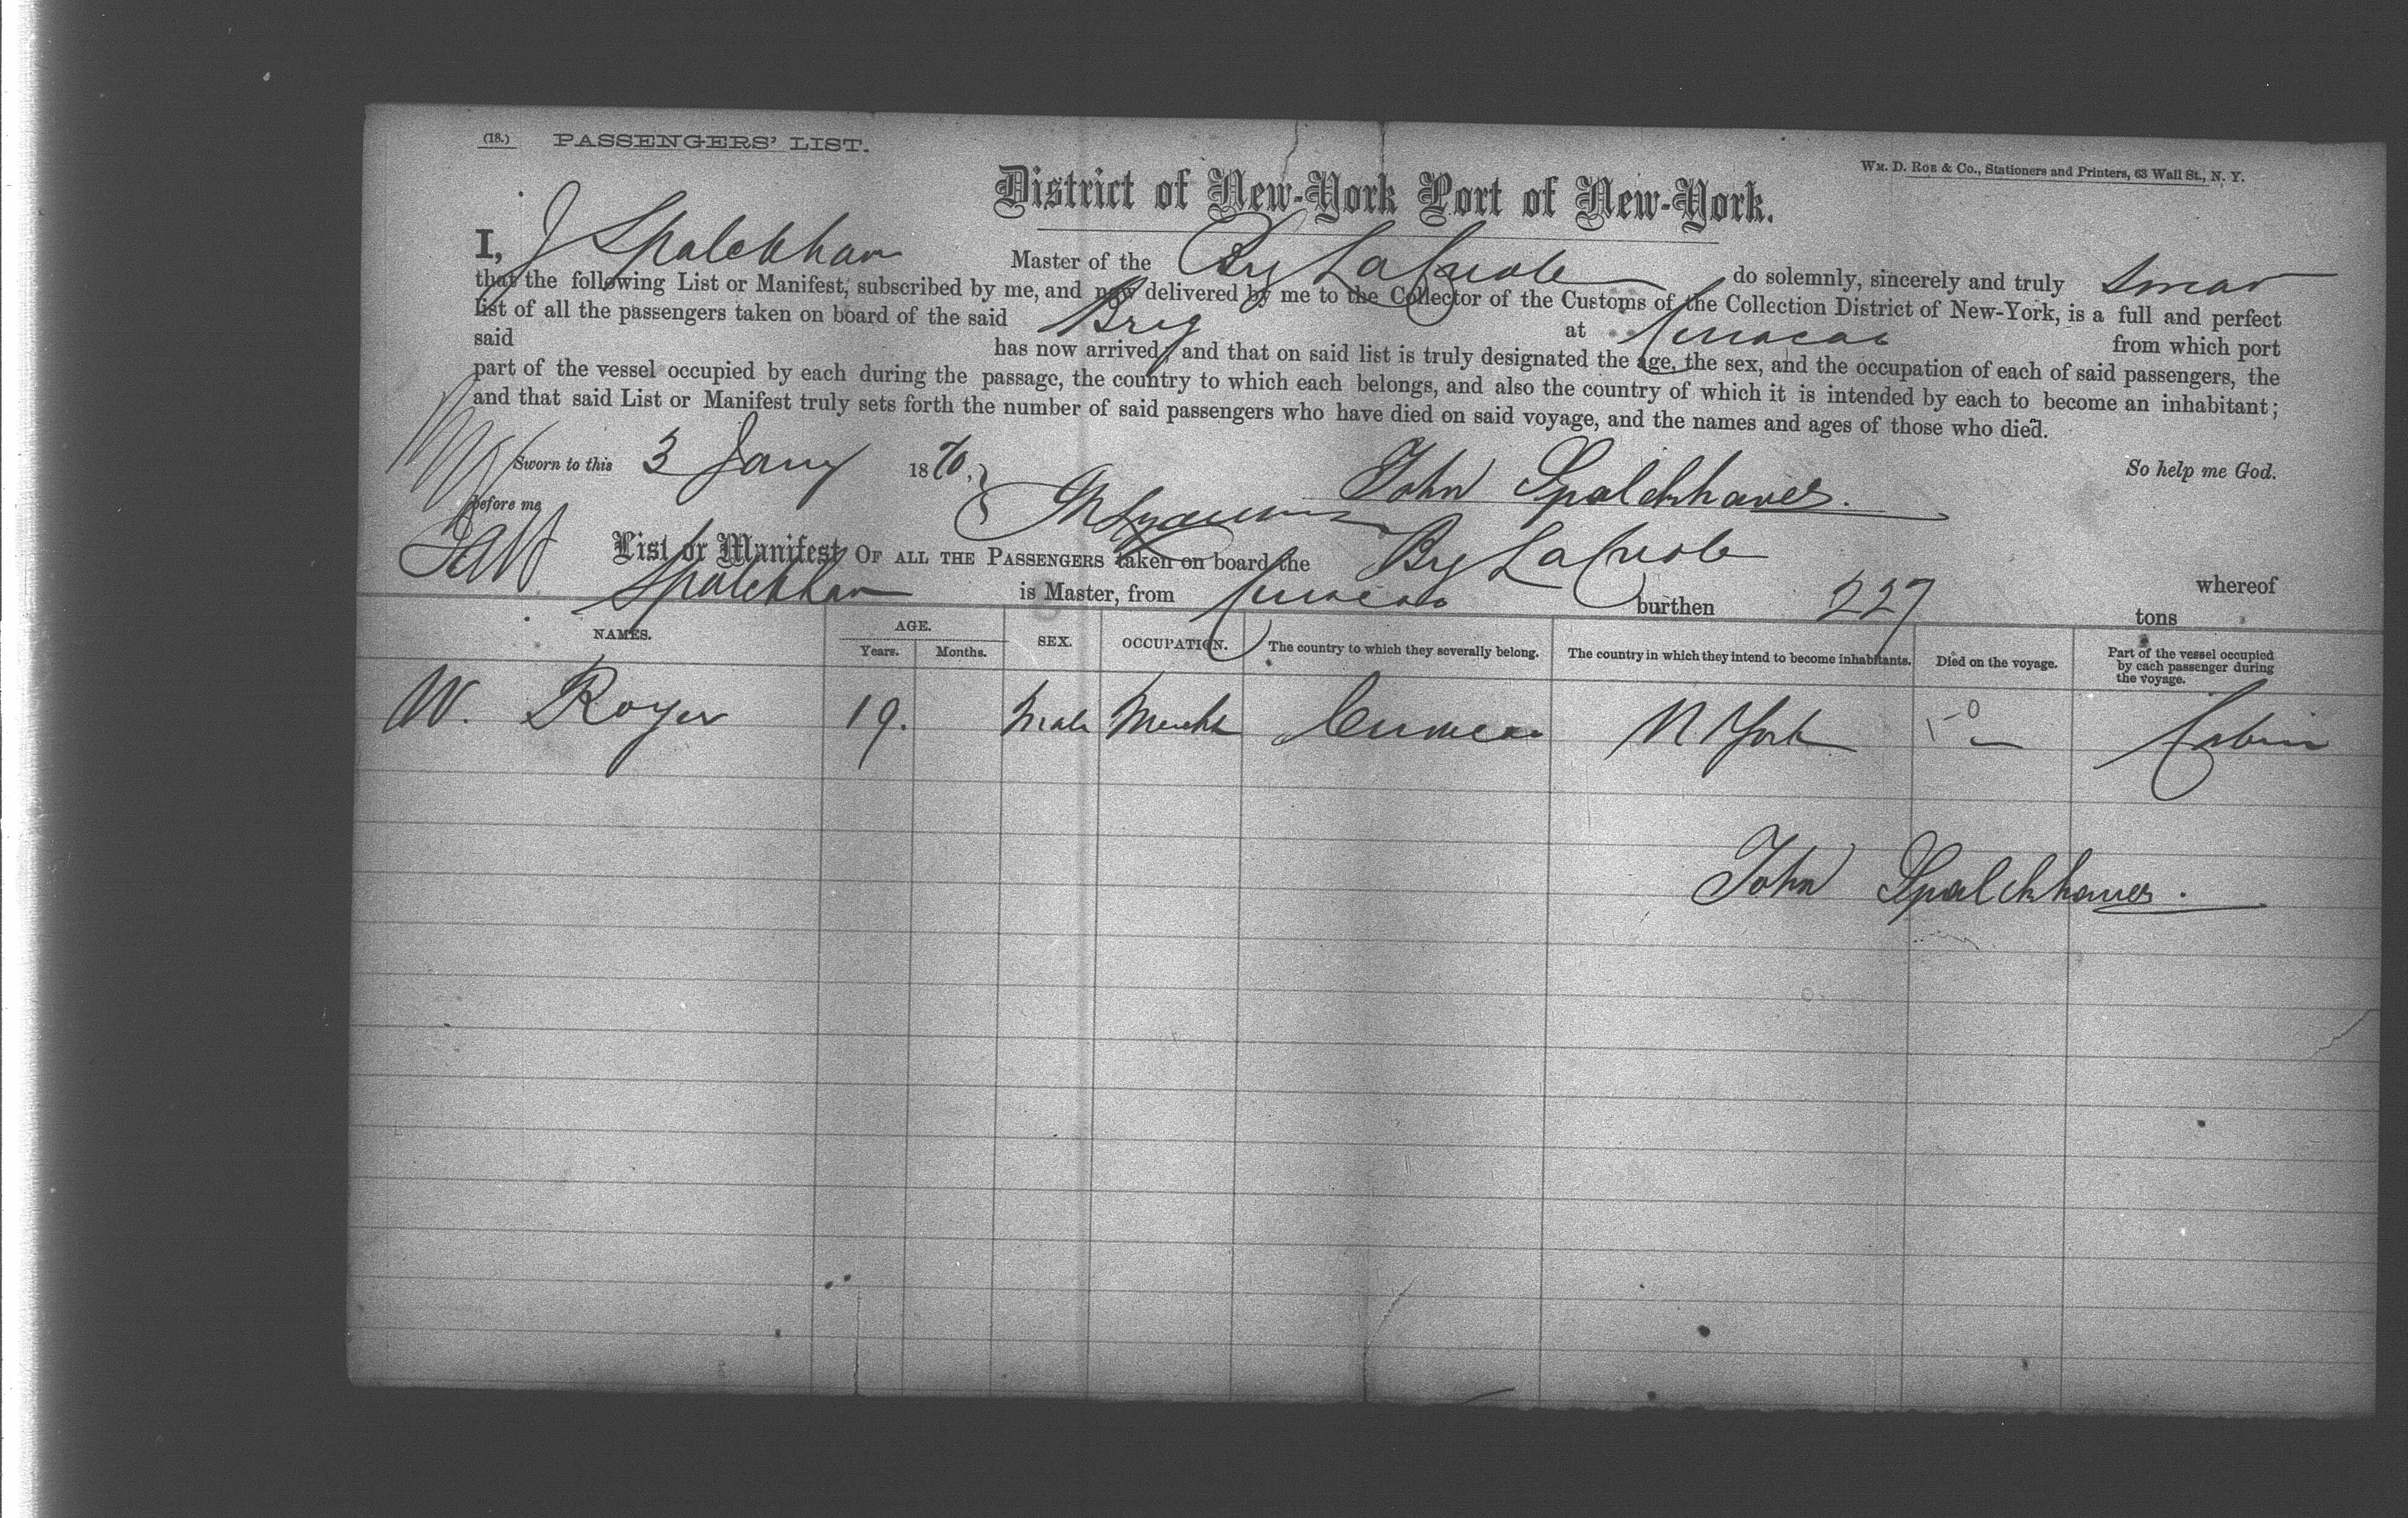 (18.) PASSENGERS' LIST.
WM. D. ROE & CO., Stationers and Printers, 63 Wall St., N. Y.
District of New-York Port of New-York.
I, J Spalckhav Master of the Brg La Creole do solemnly, sincerely and truly Swear
that the following List or Manifest, subscribed by me, and now delivered by me to the Collector of the Customs of the Collection District of New-York, is a full and perfect
list of all the passengers taken on board of the said Brig at Curacao from which port
said has now arrived; and that on said list is truly designated the age, the sex, and the occupation of each of said passengers, the
part of the vessel occupied by each during the passage, the country to which each belongs, and also the country of which it is intended by each to become an inhabitant;
and that said List or Manifest truly sets forth the number of said passengers who have died on said voyage, and the names and ages of those who died.
So help me God.
Sworn to this 3 Jany 1870.
before me
John Spalckhaver.
List or Manifest OF ALL THE PASSENGERS taken on board the Brg La Creole whereof
Spalckhav is Master, from Curacao burthen 227 tons
NAMES. AGE. Years. Months. SEX. OCCUPATION. The country to which they severally belong. The country in which they intend to become inhabitants. Died on the voyage. Part of the vessel occupied by each passenger during the voyage.
W. Royer 19. Male Mercht Curacao N York Cabin
John Spalckhaver.